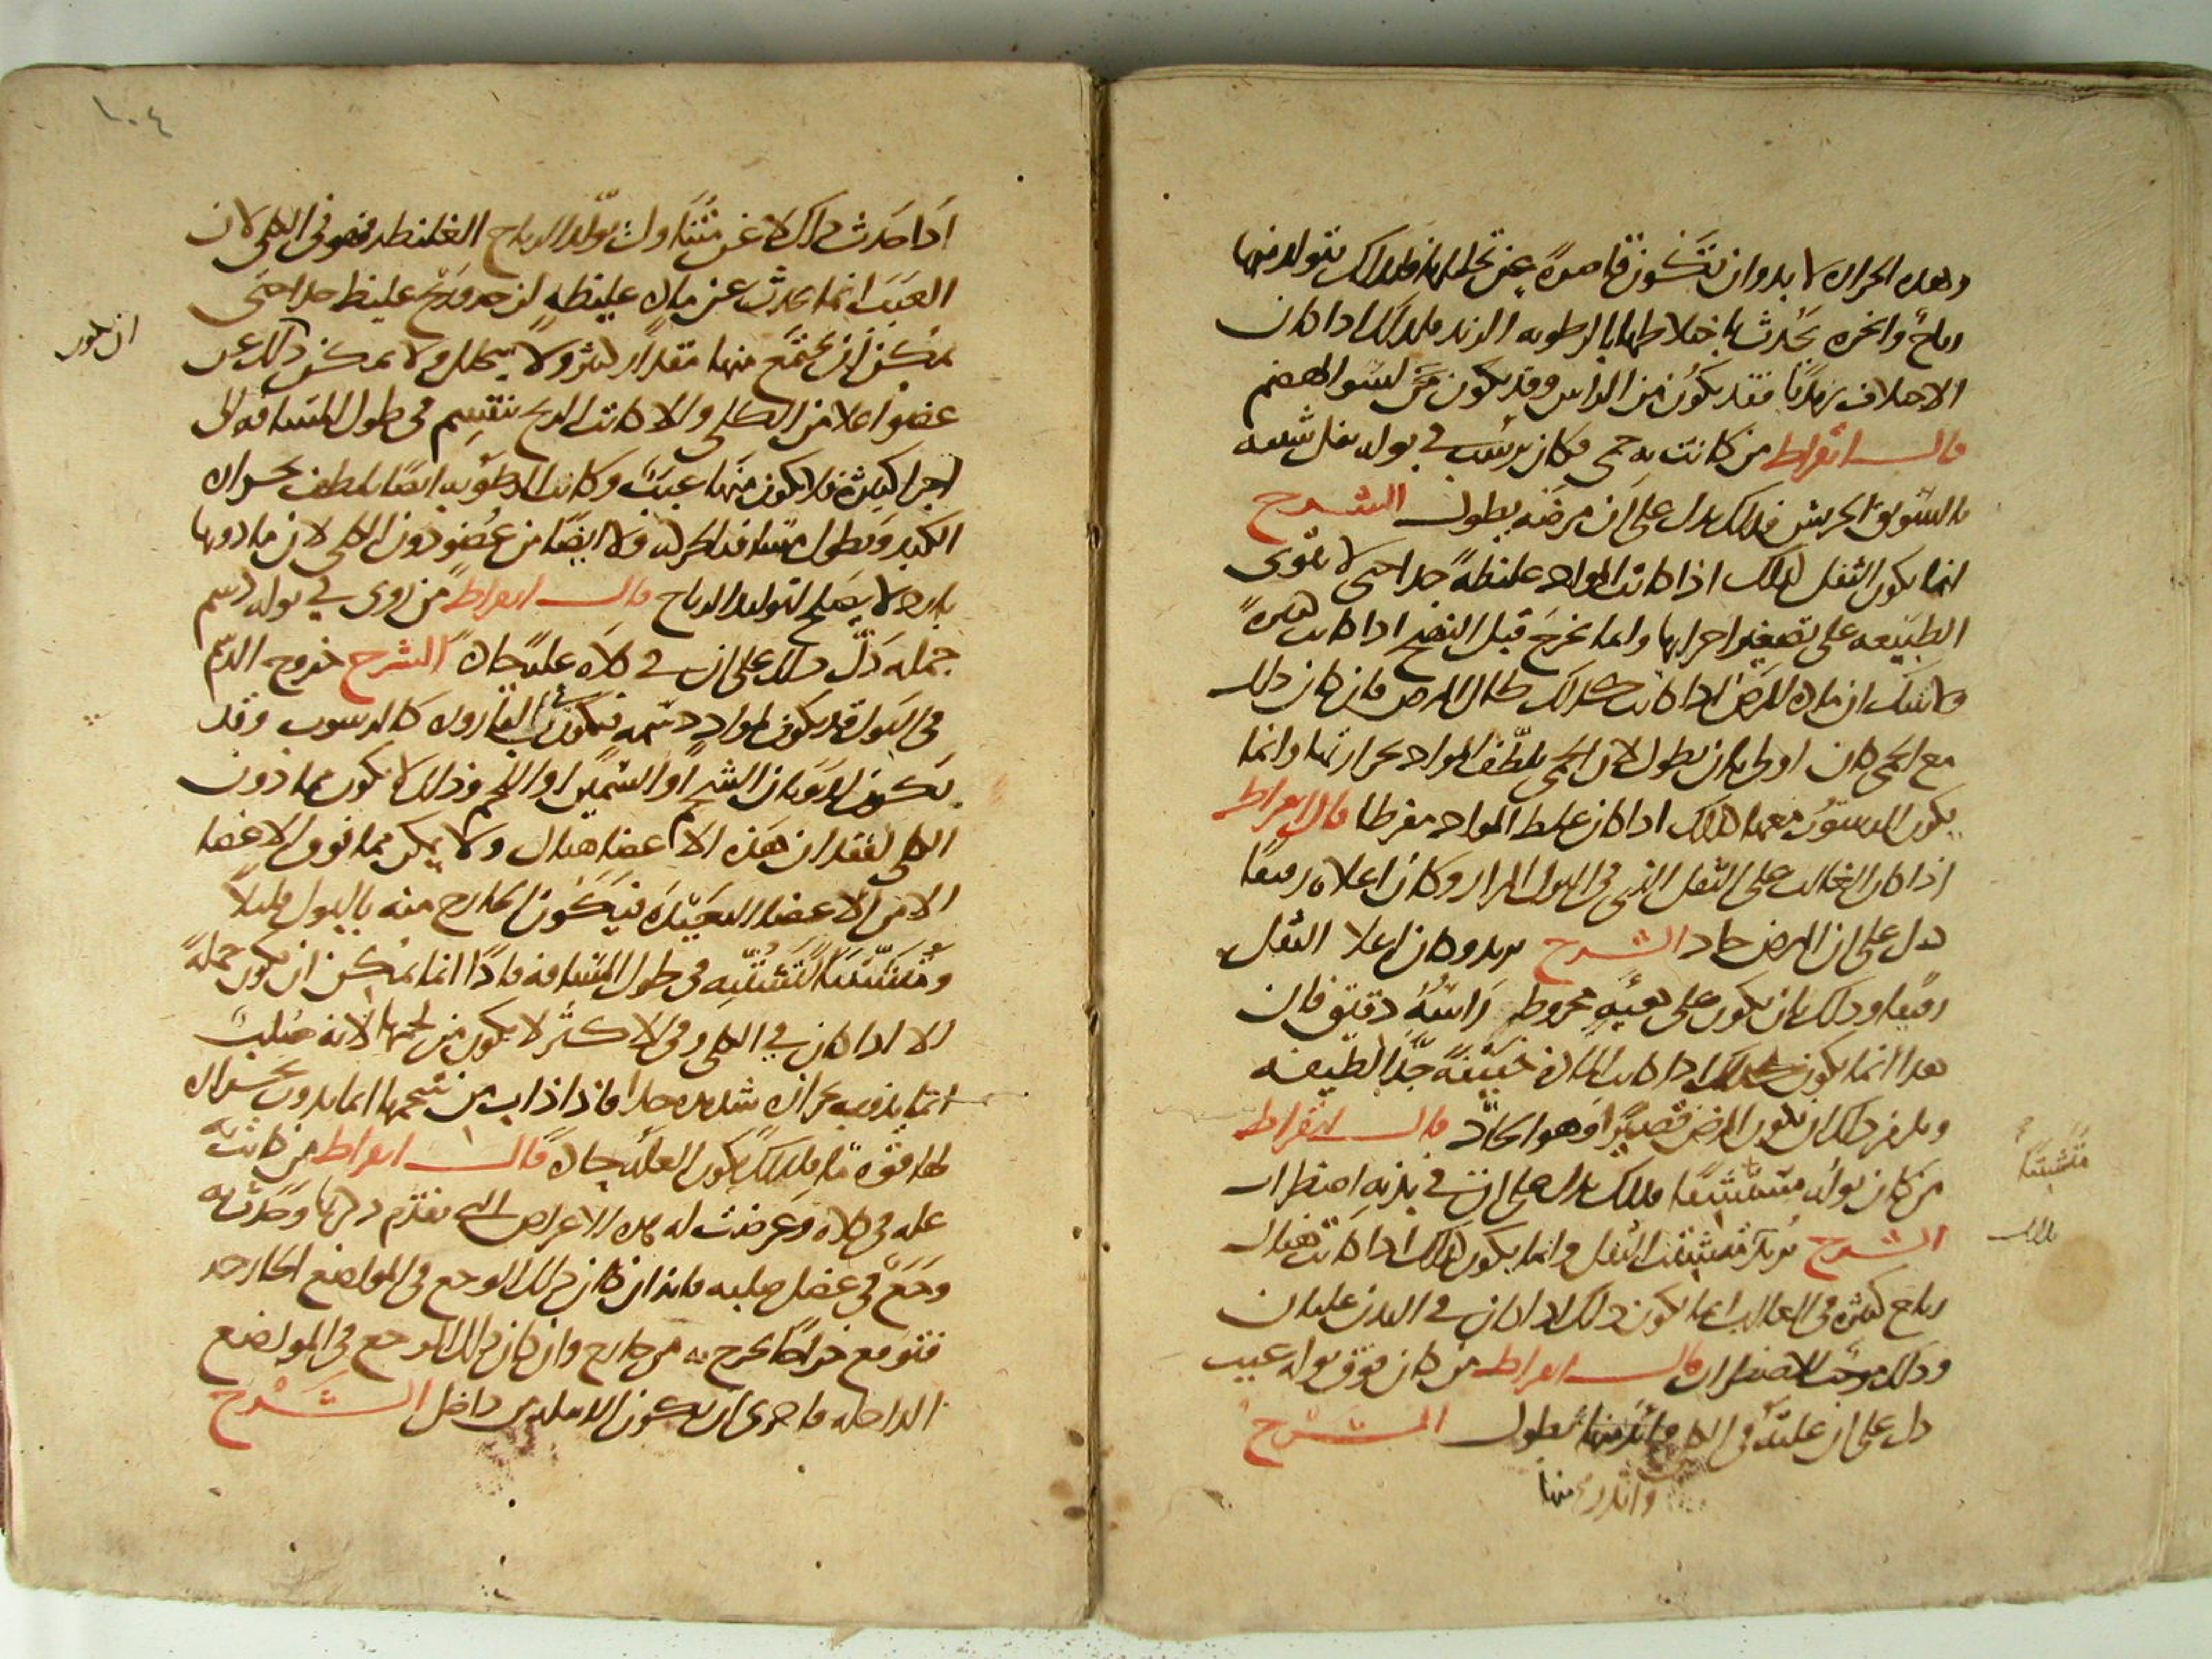 وهذه الحرارة لا بد وان تكون قاصرة عن تحليلها فلذلك يتولد منها
رياح وابخره يحدث باختلاطها بالرطوبه الزبد فلذلك اذا كان
الاختلاف زبديا فقد يكون من الراس وقد يكون من لسوا الهضم
قال ابقراط من كانت به حمى وكان يرسب في بوله ثفل شبيه
بالسويق الجريش فذلك يدل على ان مرضه يطول الشرح
انما يكون الثفل كذلك اذا كانت المواد غليظة جدا حتى لا تقوى
الطبيعه على تصغير اجزايها وانما تخرج قبل النضج اذا كانت كثيرة
ولا شك ان مادة المرض اذا كانت كذلك طال المرض فان كان ذلك
مع الحمى كان اولى بان يطول لان الحمى تلطف المواد بحرارتها وانما
يكون الرسوب معها كذلك اذا كان غلظ المواد مفرطا قال ابقراط
اذا كان الغالب على الثفل الذي في البول المرار وكان اعلاه رقيقا
دل على ان المرض حاد الشرح يريد وكان اعلا الثفل
رقيقا وذلك بان يكون على هيئة مخروط راسه دقيق فان
هذا انما يكون كذلك اذا كانت المادة خفيفة جدا لطيفه
ويلزم ذلك ان يكون المرض قصيرا وهو الحاد قال ابقراط
من كان بوله متشتتا فذلك يدل على ان في بدنه اضطراب
الشرح يريد تشتت الثفل وانما يكون كذلك اذا كانت هناك
رياح كثيرة في الغالب انما يكون ذلك اذا كان في البدن غليان
وذلك موجب للاضطراب قال ابقراط من كان فوق بوله عبب
دل على ان علته في الكلى وانذر منها بطول الشرح
وانذر منها
متشتتا
١٠٤
اذا حدث ذلك لا عن متناولات تولد الرياح الغليظه فهو في الكلى لان
العبب انما يحدث عن مادة غليظه لزجه وريح غليظ جدا حتى
يمكن ان يجتمع منها مقدار كثير ولا يتحلل ولا يمكن ذلك عن
ان يكون
عضو اعلا من الكلى والا كانت الريح تنقسم في طول المسافه الى
اجزا كثيرة فلا يكون منها عبب وكانت الرطوبه ايضا تلطف بحرارة
الكبد وبطول مسافه الحركه ولا ايضا من عضو دون الكلى لان ما دونها
بارد لا يصلح لتوليد الرياح قال ابقراط من روى في بوله دسم
جمله دل ذلك على ان في كلاه علة حادة الشرح خروج الدسم
في البول قد يكون لمواد دسمه فيكون في القاروره كالرسوب وقد
يكون لذوبان الشحم او السمين او اللحم وذلك لا يكون مما دون
الكلى لفقدان هذه الاعضا هناك ولا يمكن مما فوق الاعضا
الا من الاعضا البعيدة فيكون الخارج منه بالبول قليلا
ومتشتتا لتشتته في طول المسافه فاذا انما يمكن ان يكون جملة
الا اذا كان في الكلى وفي الاكثر لا يكون من لحمها لانه صلب
انما يذوب بحرارة شديده جدا فاذا ذاب من شحمها انما يذوب بحرارة
لها قوة ما فلذلك يكون العلة حادة قال ابقراط من كانت به
عله في كلاه وعرضت له هذه الاعراض التي تقدم ذكرها وحدث به
وجع في عضل صلبه فانه ان كان ذلك الوجع في المواضع الخارجه
فتوقع خراجا يخرج به من خارج وان كان ذلك الوجع في المواضع
الداخله فاحرى ان تكون الدبيله من داخل الشرح